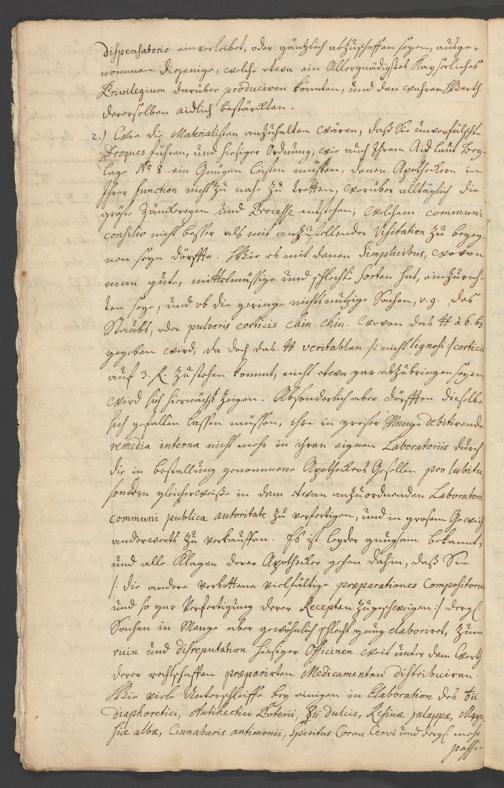 Dispensatorio einverleibet, oder gäntzlich abzuschaffen seyen, ausge-
nommen diejenige, welche etwa ein Allergnädigstes Kayserliches
Privilegium darüber produciren könnten, und den wahren Werth
derenselben aidlich bestärckten.
2.) Wie die Materialisten anzuhalten wären, daß Sie unverfälschte
Droguen führen, und hiesiger Ordnung, wie auch Ihrem Aid laut Bey-
lage No 8. ein Genügen leisten müsten, denen Apotheckern in
Ihrer function nicht zu nahe zu tretten, worüber alltäglich die
gröste Zänckereyen und Processe entstehen, welchem communi
consilio nicht besser als mit anzustellender Visitation zu begeg-
nen seyn dörffte. Wie es mit denen Simplicibus, wovon
man gute, mittelmässige und schlechte Sorten hat, einzurich-
ten seye, und ob die geringe nichtsnutzige Sachen, v.g. das
Staubs, oder pulveris corticis chin. chin. wovon das ℔ à 6. bz
gegeben wird, da doch das ℔ veritablen /: nicht lignosi :/ corticis
auf 3. f. zu stehen kommt, nicht etwa gar abzubringen seyen
wird sich hiernächst zeigen. Absonderlich aber dörfften dieselbe
sich gefallen lassen müssen, ihre in grosser Menge debitirende
remedia interna nicht mehr in ihren eignen Laboratoriis durch
die in bestallung genommene Apothecker Gesellen pro lubitu
sondern gleicherweise in dem etwan anzuordnenden Laboratorio
communi publica autoritate zu verfertigen, und in grosem Gewicht
anderwerts zu verkauffen. Es ist leyder genugsam bekannt,
und alle Klagen derer Apothecker gehen dahin, daß Sie
/: die andere verbottene vielfältige præparationes Compositorum
und so gar Verfertigung derer Recepten zugeschwigen :/ dergl.
Sachen in Menge aber gewöhnlich schlecht genug elaboriret, zum
ruin und disreputation hiesiger Officinen weit unter dem Werth
derer rechtschaffen præparirten Medicamenten distribuiren.
Wie viele Unterschleiffe bey einigen in Elaboration des ♁ii
diaphoretici, Antihectici Poterii, ☿ii dulcis, Resinæ jalappæ, Magne-
siæ albæ, Cinnabaris antimonii, Spiritus Cornu Cervi und dergl. mehr
passi-